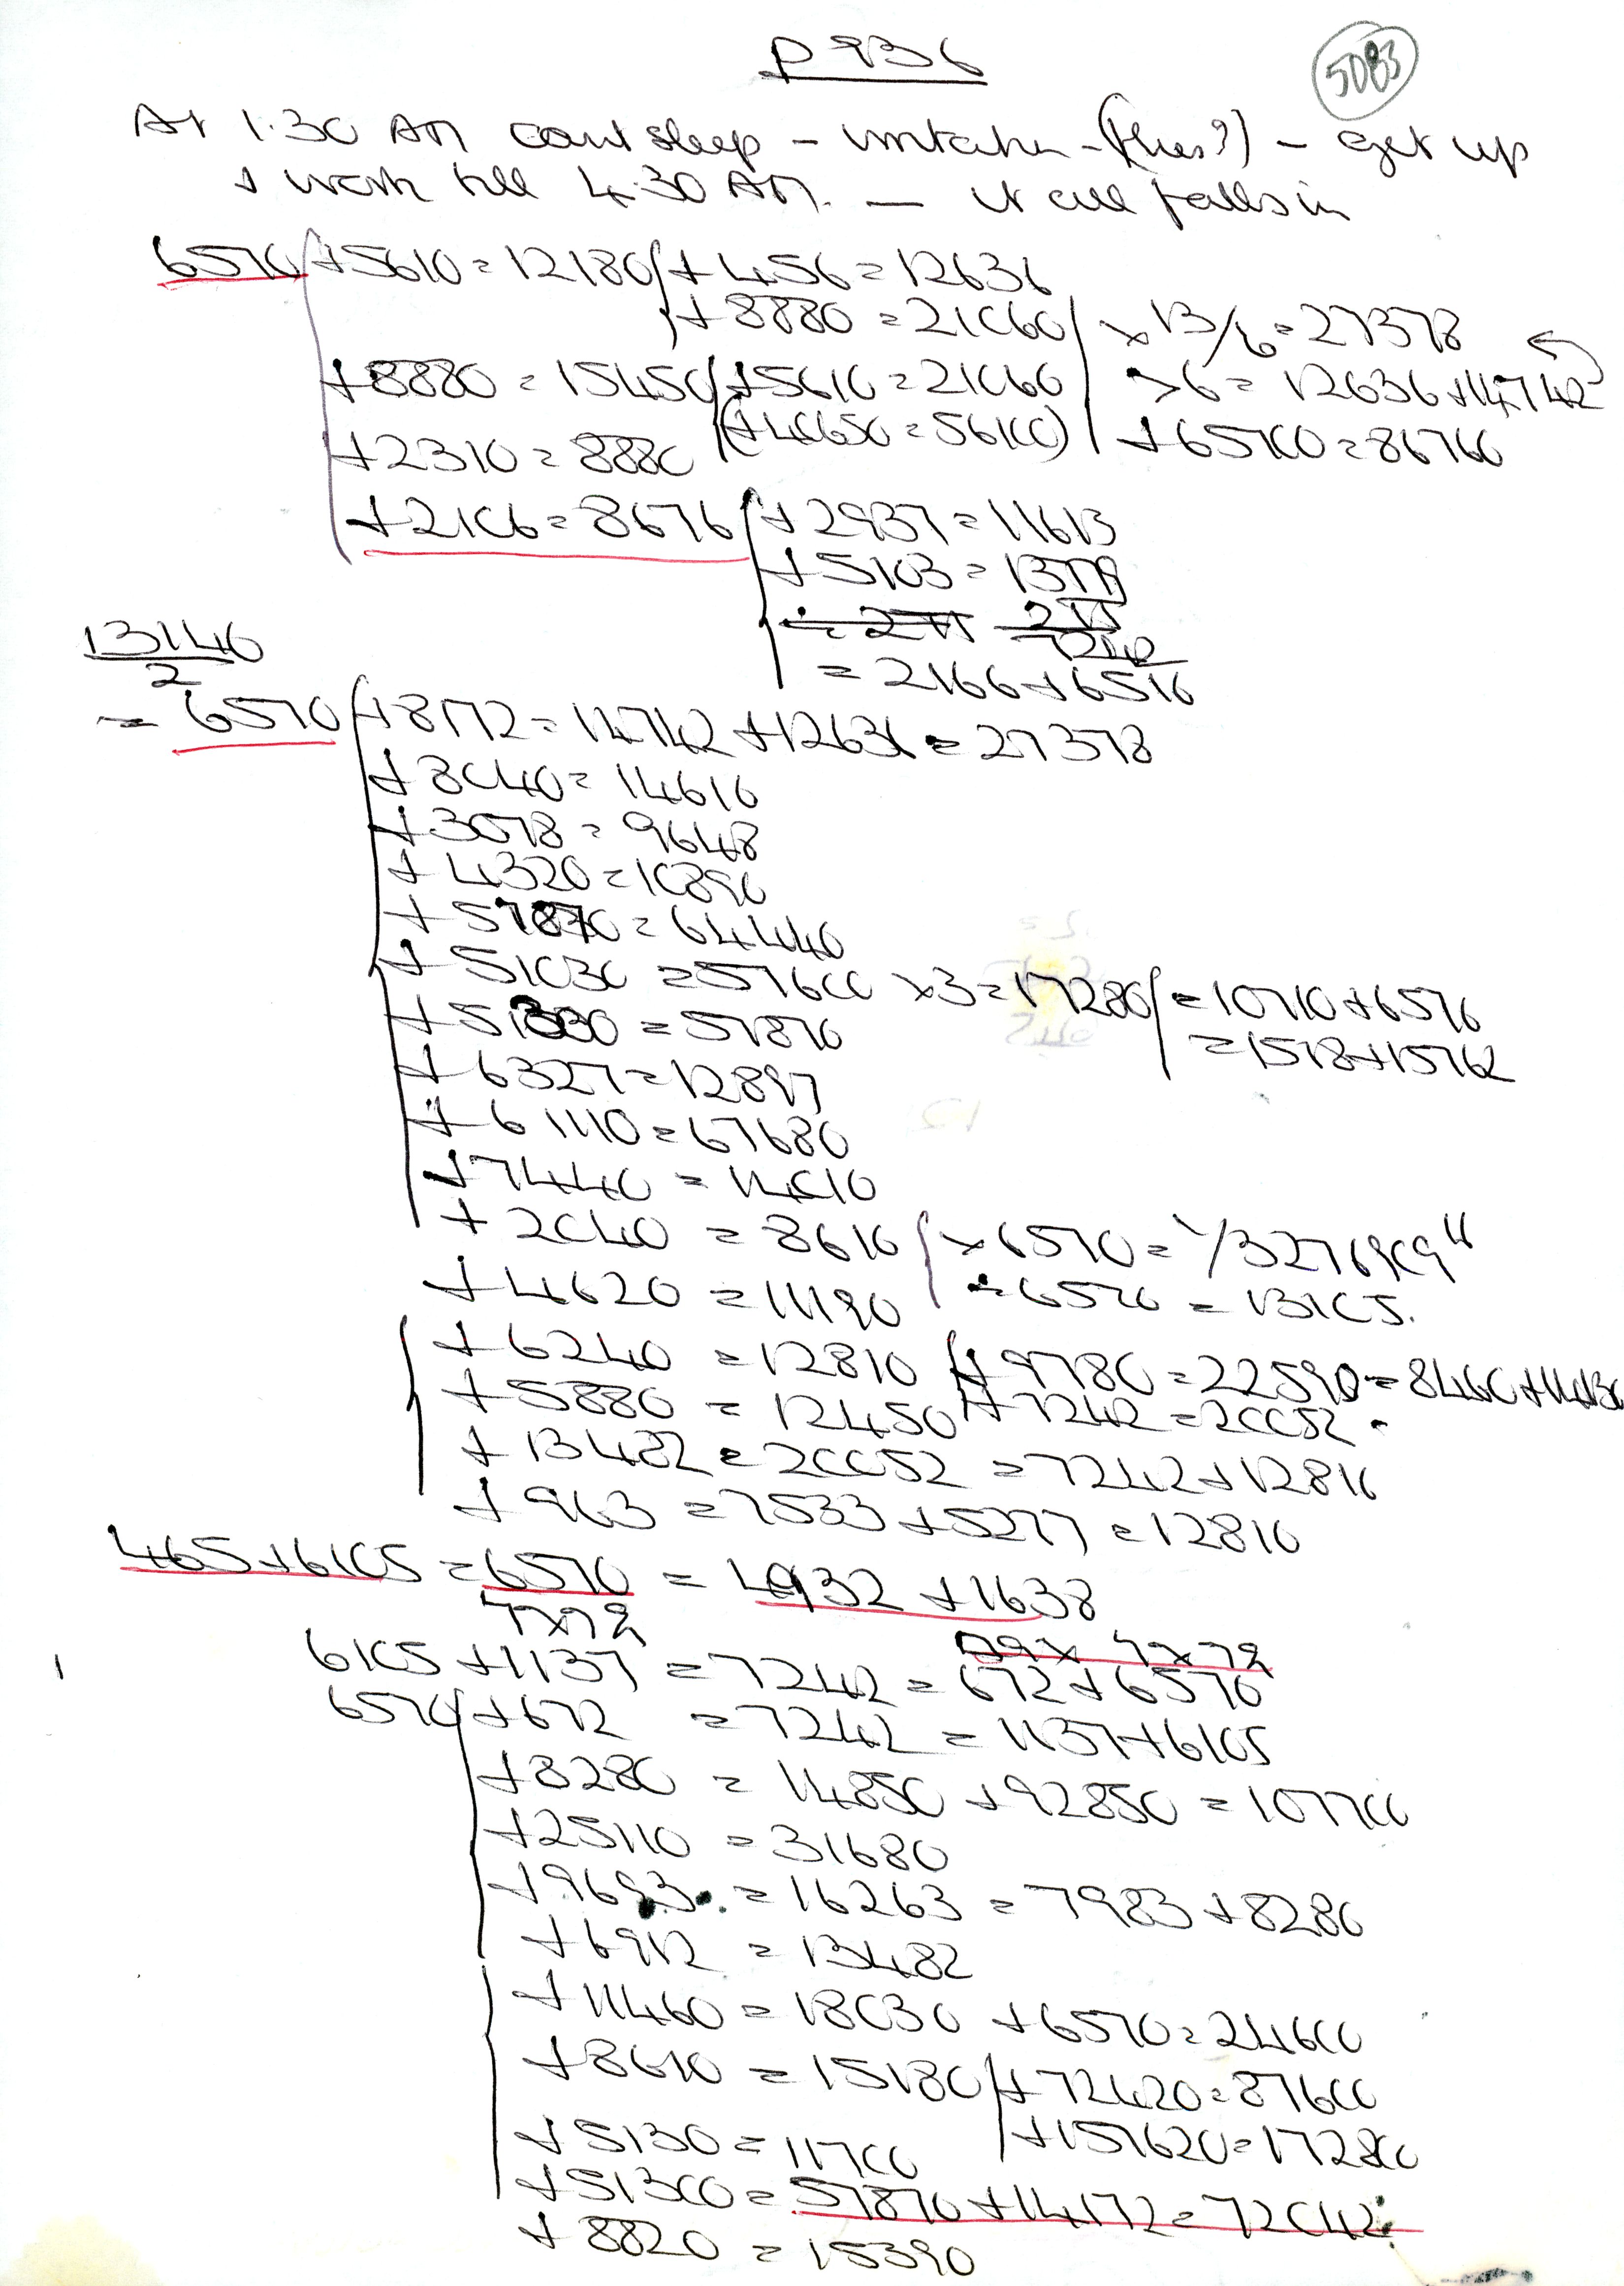 p 936
5083
At 1.30 AM cant sleep – – get up
+ work till 4.30 AM. — it all falls in
6570 +5610 = 12180 + 456 = 12636
+ 8880 = 21060 × 13/6 = 27378
+8880 = 15450 +5610 = 21060 >6 = 12636+14742
+2310 = 8880 (+40650 = 56100) +65700 = 86760
+2106 = 8676 +2937 = 11613
+5103 = 13779
= 2166+6510
13140
2
= 6570 +8172 = 14742 +12636 = 27378
+ 8040 = 14610
+3078 = 9648
+ 4320 = 10890
+ 57870 = 64440
+ 51030 = 57600 ×3 = 17280 = 10710+6570
+ 51300 = 57870 = 1518+15762
+ 6327 = 12897
+ 61110 = 67680
+7440 = 14010
+ 2040 = 8610 ×6570 = 1/3276909"
+ 4620 = 11190 ÷6570 = 13105.
+ 6240 = 12810 + 9780 = 22590 = 8460+14130
+ 5880 = 12450 + 7242 = 20052
+ 13482 = 20052 = 7242+12810
+ 963 = 7533 +5277 = 12810
465+6105 = 6570 = 4932 +1638
7×78
6105 +1137 = 7242 = 672+6570
6570 +672 = 7242 = 1137+6105
+8280 = 14850 +92850 = 107700
+25110 = 31680
+9693 = 16263 = 7983+8280
+6912 = 13482
+11460 = 18030 +6570 = 24600
+8610 = 15180 +72420 = 87600
+5130 = 11700 +157620 = 172800
+51300 = 57870 +14172 = 72042
+ 8820 = 15390